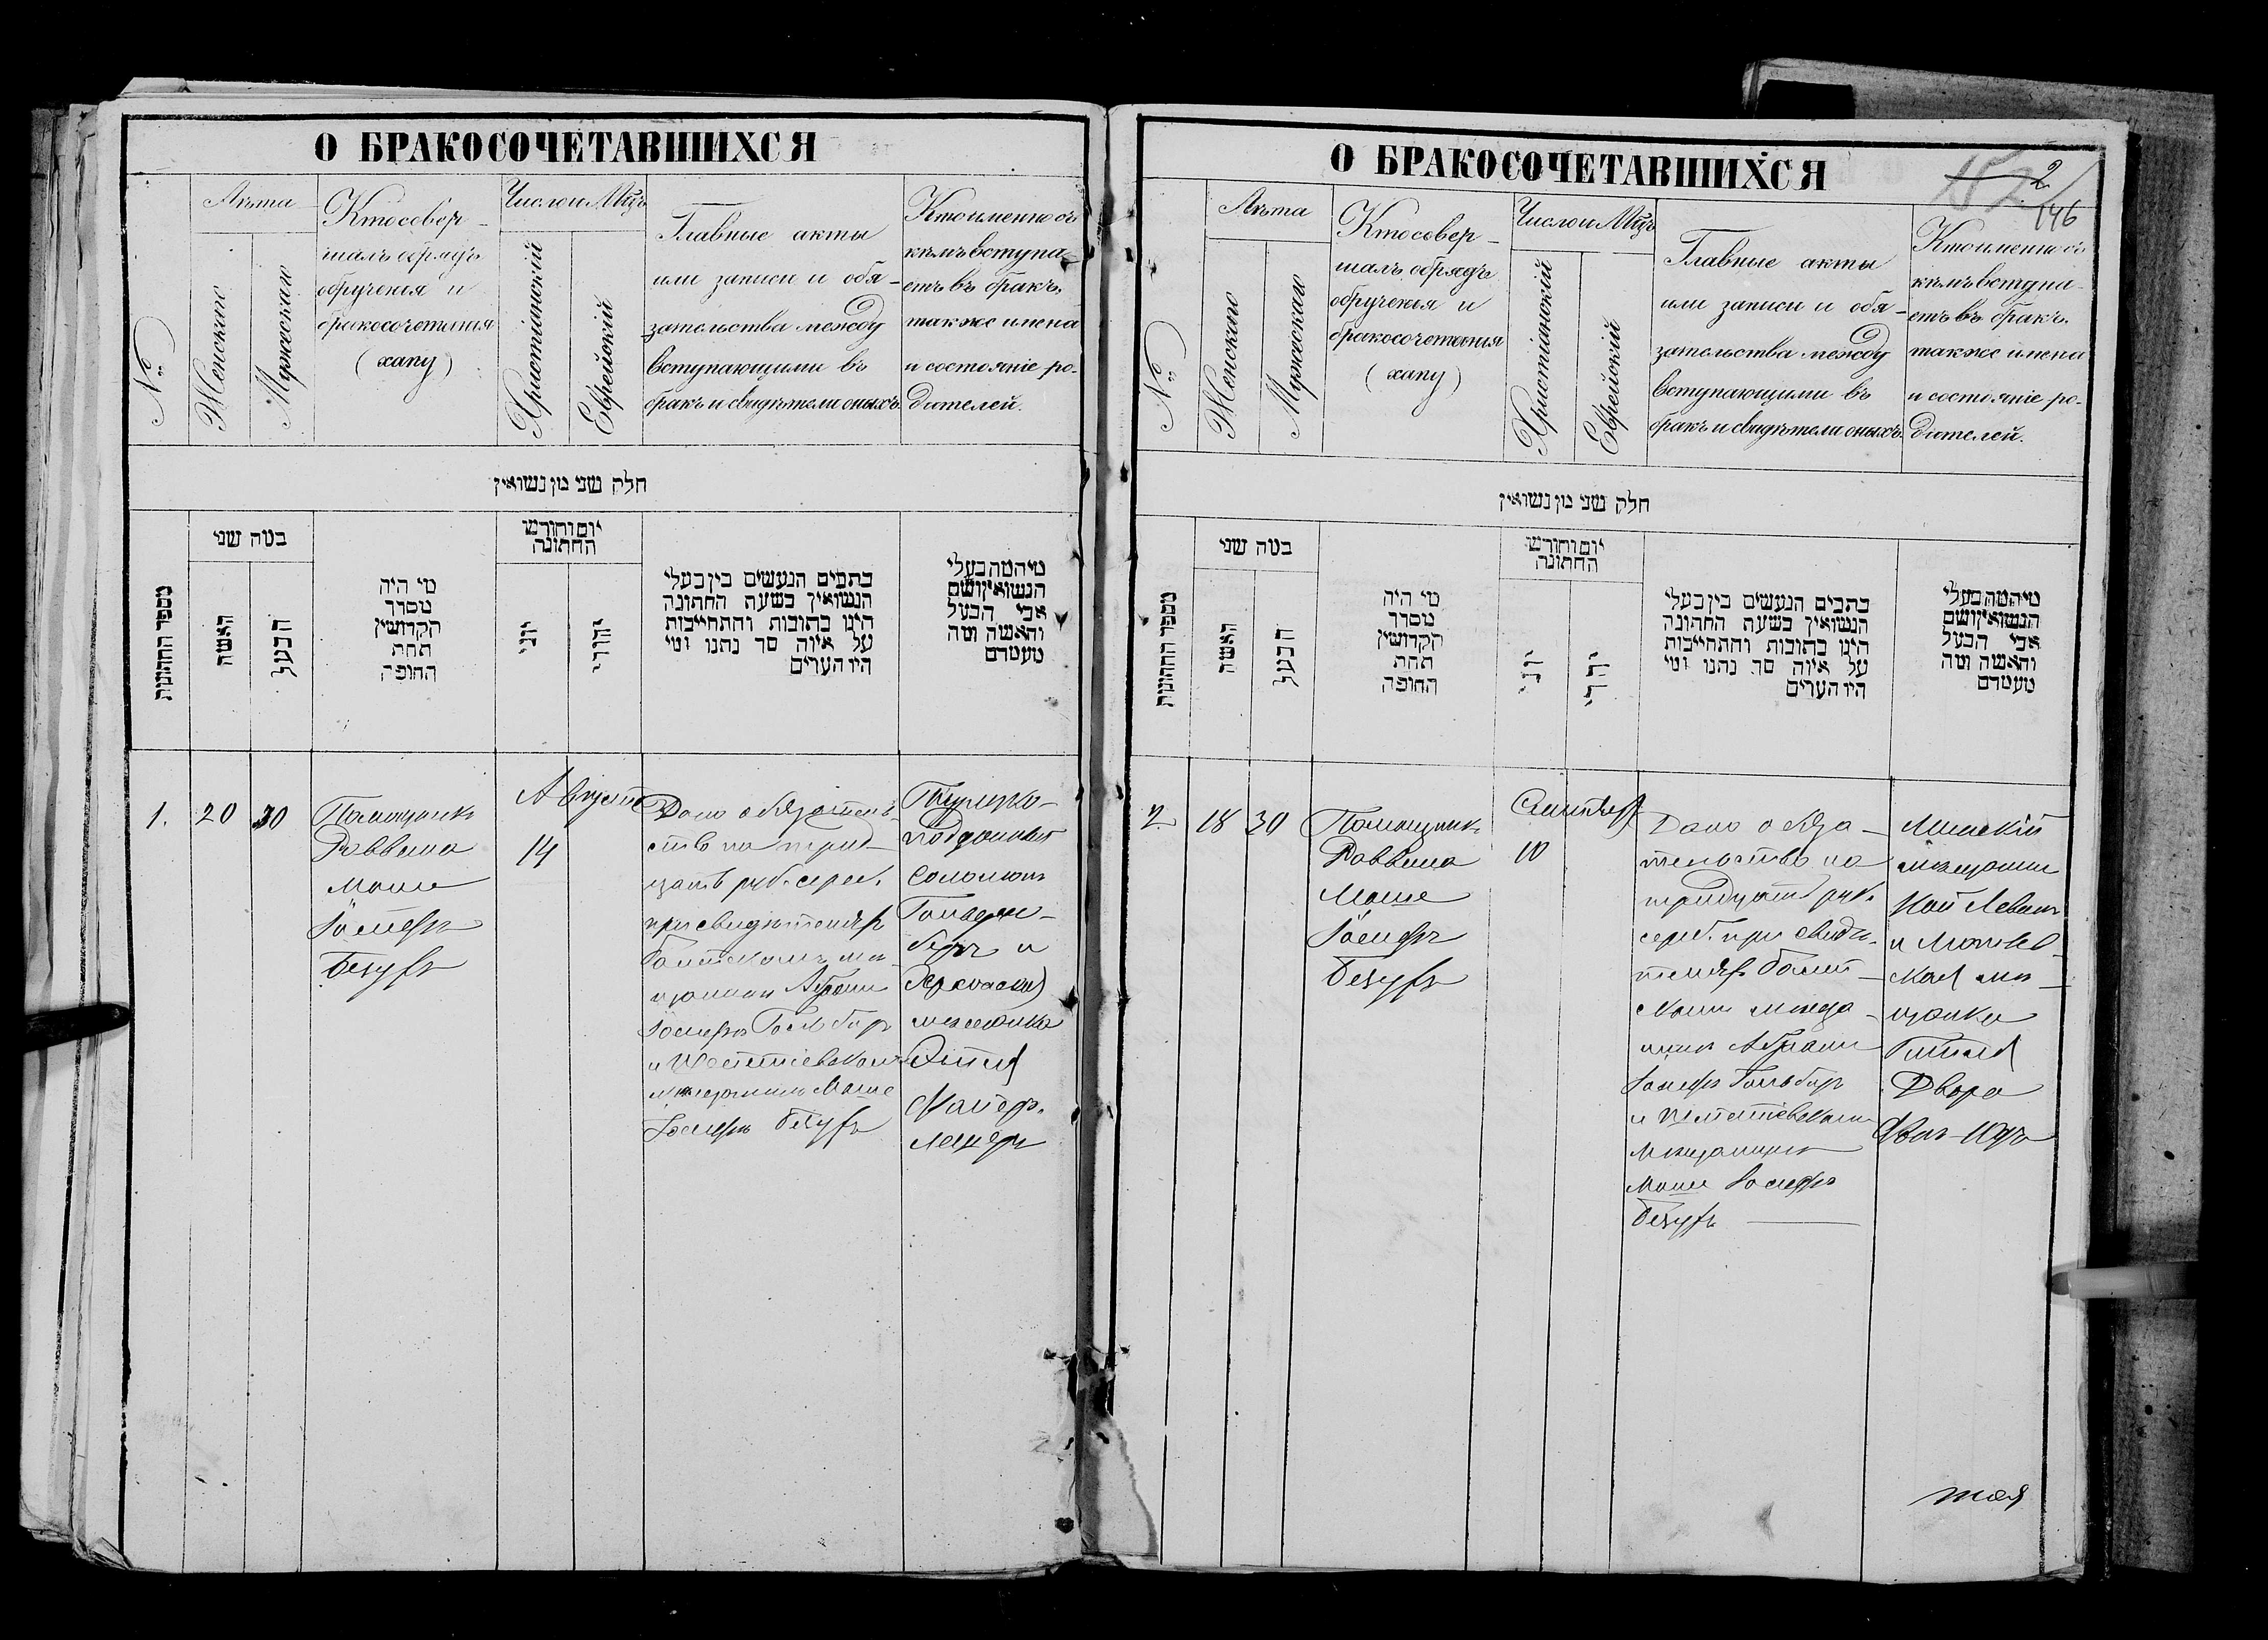 О БРАКОСОЧЕТАВШИХСЯ
№
Лѣта
Женскаго
Мужескаго
Кто совер-
шалъ обрядъ
обрученія и
бракосочетанія
(хапу)
Число и Мцъ
Христіанскій
Еврейскій
Главные акты
или записи и обя-
зательства между
вступающими въ
бракъ и свидѣтели оныхъ.
Кто именно съ
кѣмъ вступа-
етъ въ бракъ,
также имена
и состояніе ро-
дителей.
חלק שני מן נשואין
מספר החתונות
במה שני
האשה
הבעל
מי היה
מסדר
הקדושין
תחת
החופה
יום וחודש
החתונה
יוני
יהודי
כתבים הנעשים בין בעלי
הנשואין בשעת החתונה
היינו כתובות והתחייבות
על איזה סך נתנו ומי
היו העדים
מי המה בעלי
הנשואין ושם
אבי הבעל
והאשה ומה
מעמדם
1.
20
30
Помощникъ
Раввина
Моше
Іосифъ
Безуфъ
Августа
14
Дано обязатель-
ство на трид-
цать руб. сереб.
при свидѣтеляхъ
мѣ-
щанинъ Абрамъ
Іосифъ
и
мѣщанинъ Моше
Іосифъ Безуфъ
Турецко-
подданный
Соломонъ
Гольден-
бергъ и
Черкасская
мѣщанка
О БРАКОСОЧЕТАВШИХСЯ
2
146
№
Лѣта
Женскаго
Мужескаго
Кто совер-
шалъ обрядъ
обрученія и
бракосочетанія
(хапу)
Число и Мцъ
Христіанскій
Еврейскій
Главные акты
или записи и обя-
зательства между
вступающими въ
бракъ и свидѣтели оныхъ.
Кто именно съ
кѣмъ вступа-
етъ въ бракъ,
также имена
и состояніе ро-
дителей.
חלק שני מן נשואין
מספר החתונות
במה שני
האשה
הבעל
מי היה
מסדר
הקדושין
תחת
החופה
יום וחודש
החתונה
יוני
יהודי
כתבים הנעשים בין בעלי
הנשואין בשעת החתונה
היינו כתובות והתחייבות
על איזה סך נתנו ומי
היו העדים
מי המה בעלי
הנשואין ושם
אבי הבעל
והאשה ומה
מעמדם
2.
18
30
Помощникъ
Раввина
Моше
Іосифъ
Безуфъ
Сентября
10
Дано обяза-
тельство на
тридцать руб.
сереб. при свидѣ-
теляхъ
мѣща-
нинъ Абрамъ
Іосифъ
и
мѣщанинъ
Моше Іосифъ
Безуфъ
Минскій
мѣщанинъ
Левинъ
и Могилев-
ская мѣ-
щанка
Двора